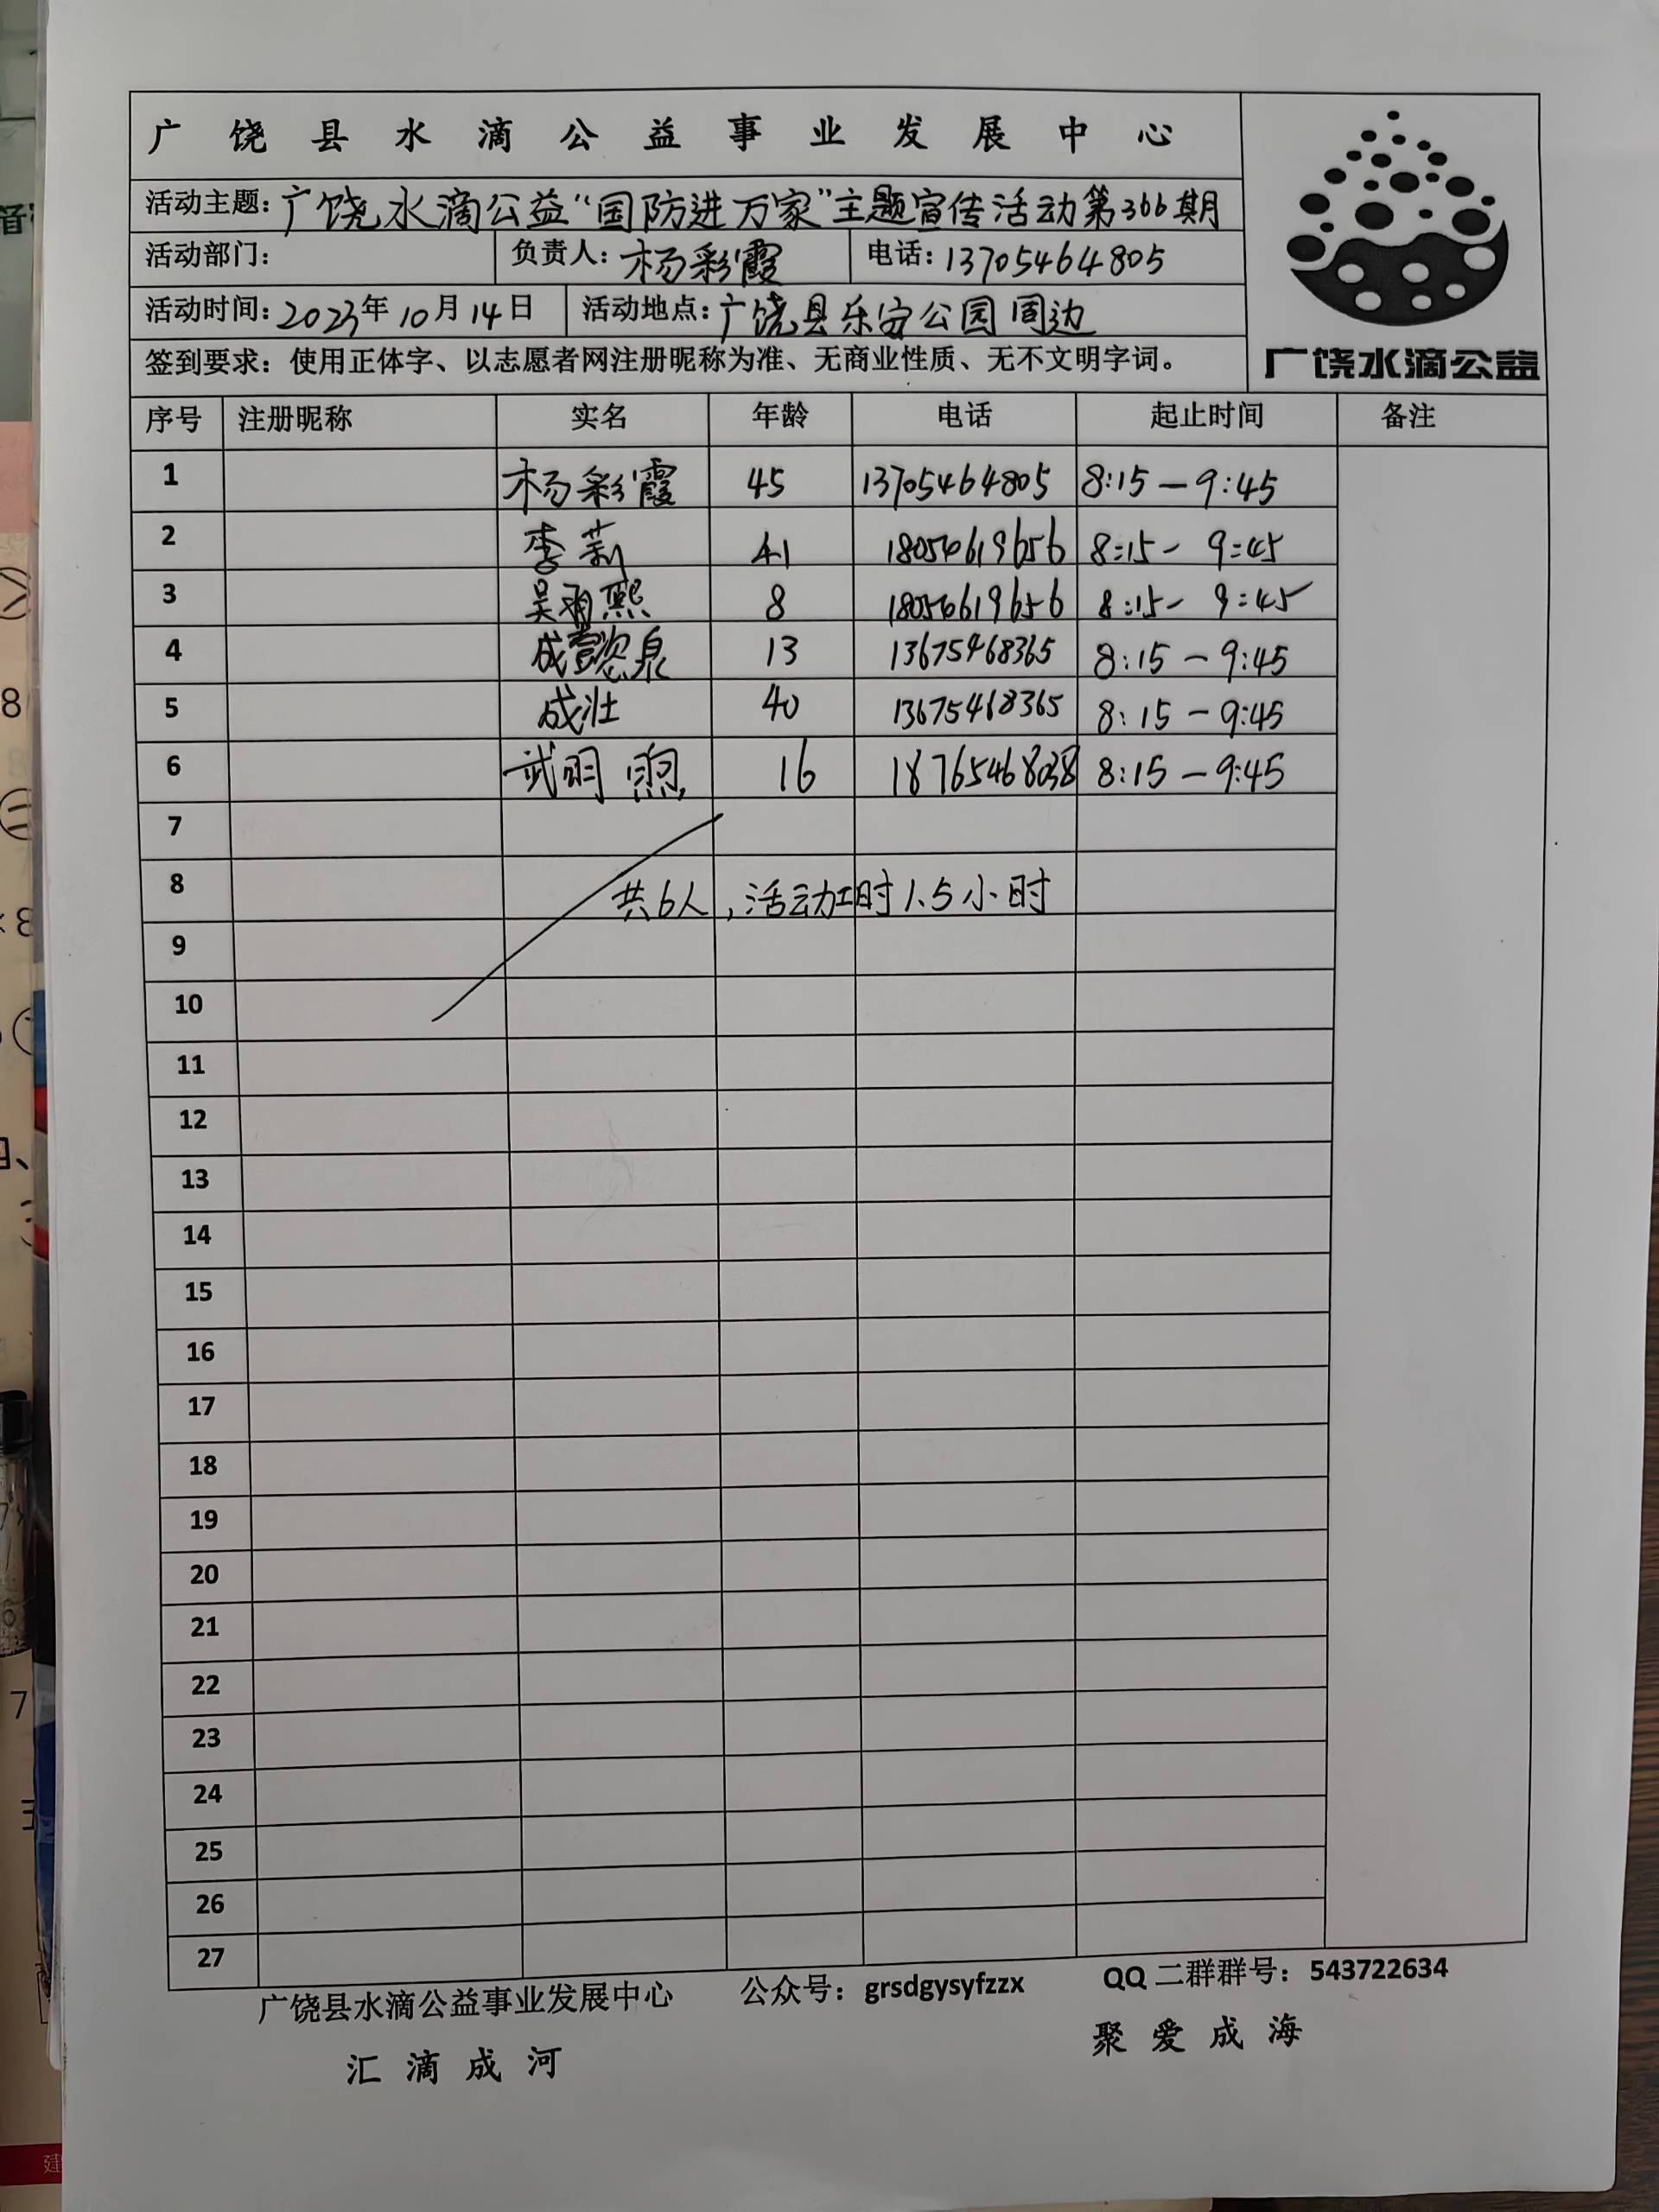 广饶县水滴公益事业发展中心
活动主题：广饶水滴公益“国防进万家”主题宣传活动第366期
活动部门： 负责人：杨彩霞 电话：13705464805
活动时间：2023年10月14日 活动地点：广饶县乐安公园周边
签到要求：使用正体字、以志愿者网注册昵称为准、无商业性质、无不文明字词。
广饶水滴公益
序号 注册昵称 实名 年龄 电话 起止时间 备注
1 杨彩霞 45 13705464805 8:15－9:45
2 李莉 41 18054619656 8:15－9:45
3 吴羽熙 8 18054619656 8:15－9:45
4 13 13675468365 8:15－9:45
5 成壮 40 13675468365 8:15－9:45
6 武明煦 16 18765468038 8:15－9:45
7
8 共6人，活动工时1.5小时
9
10
11
12
13
14
15
16
17
18
19
20
21
22
23
24
25
26
27
广饶县水滴公益事业发展中心 公众号：grsdgysyfzzx QQ二群群号：543722634
汇滴成河 聚爱成海